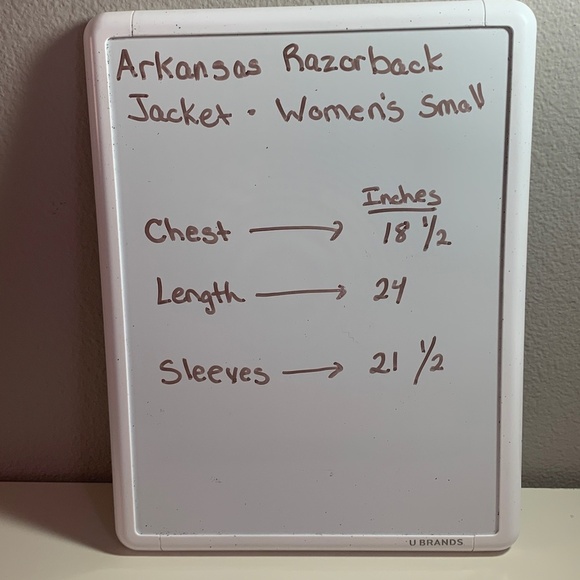 Arkansas Razorback
Jacket • Women's Small
Inches
Chest → 18 1/2
Length → 24
Sleeves → 21 1/2
U BRANDS